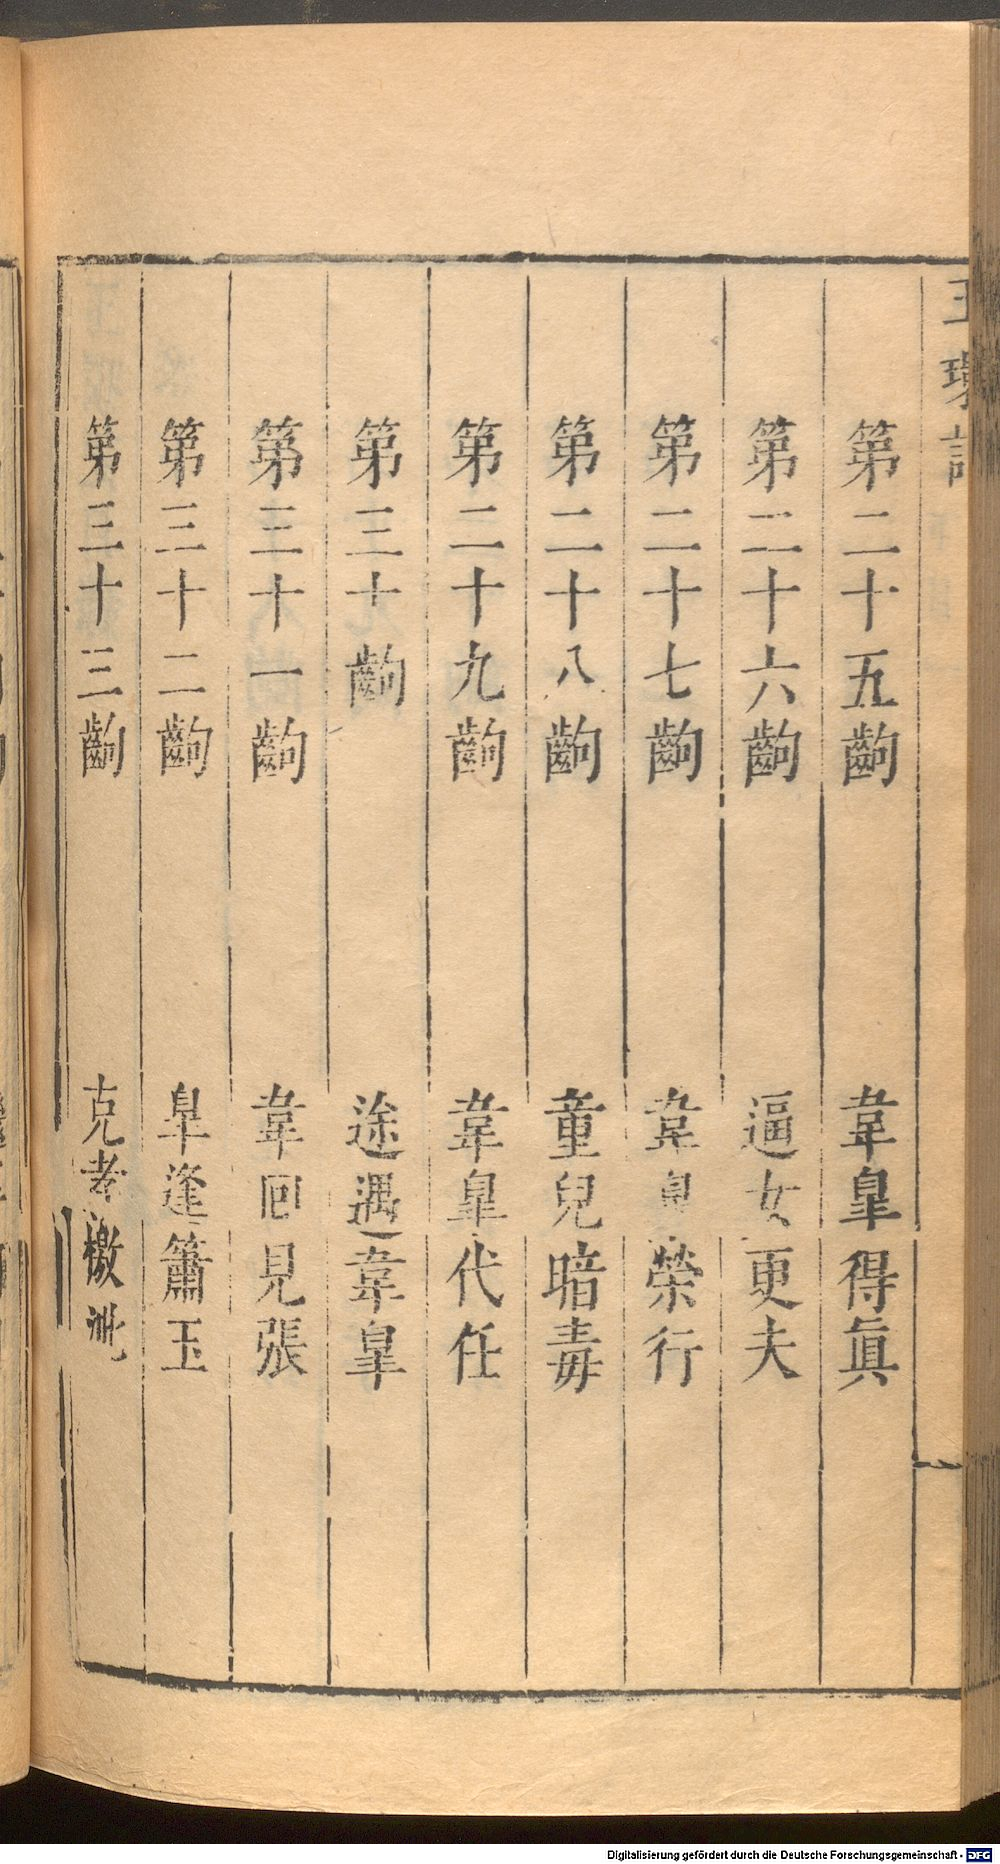 玉環記
第二十五齣 韋臯得眞
第二十六齣 逼女更夫
第二十七齣 韋臯榮行
第二十八齣 童兒暗毒
第二十九齣 韋臯代任
第三十齣 途遇韋臯
第三十一齣 韋囘見張
第三十二齣 臯逢簫玉
第三十三齣 克孝檄
Digitalisierung gefördert durch die Deutsche Forschungsgemeinschaft - DFG